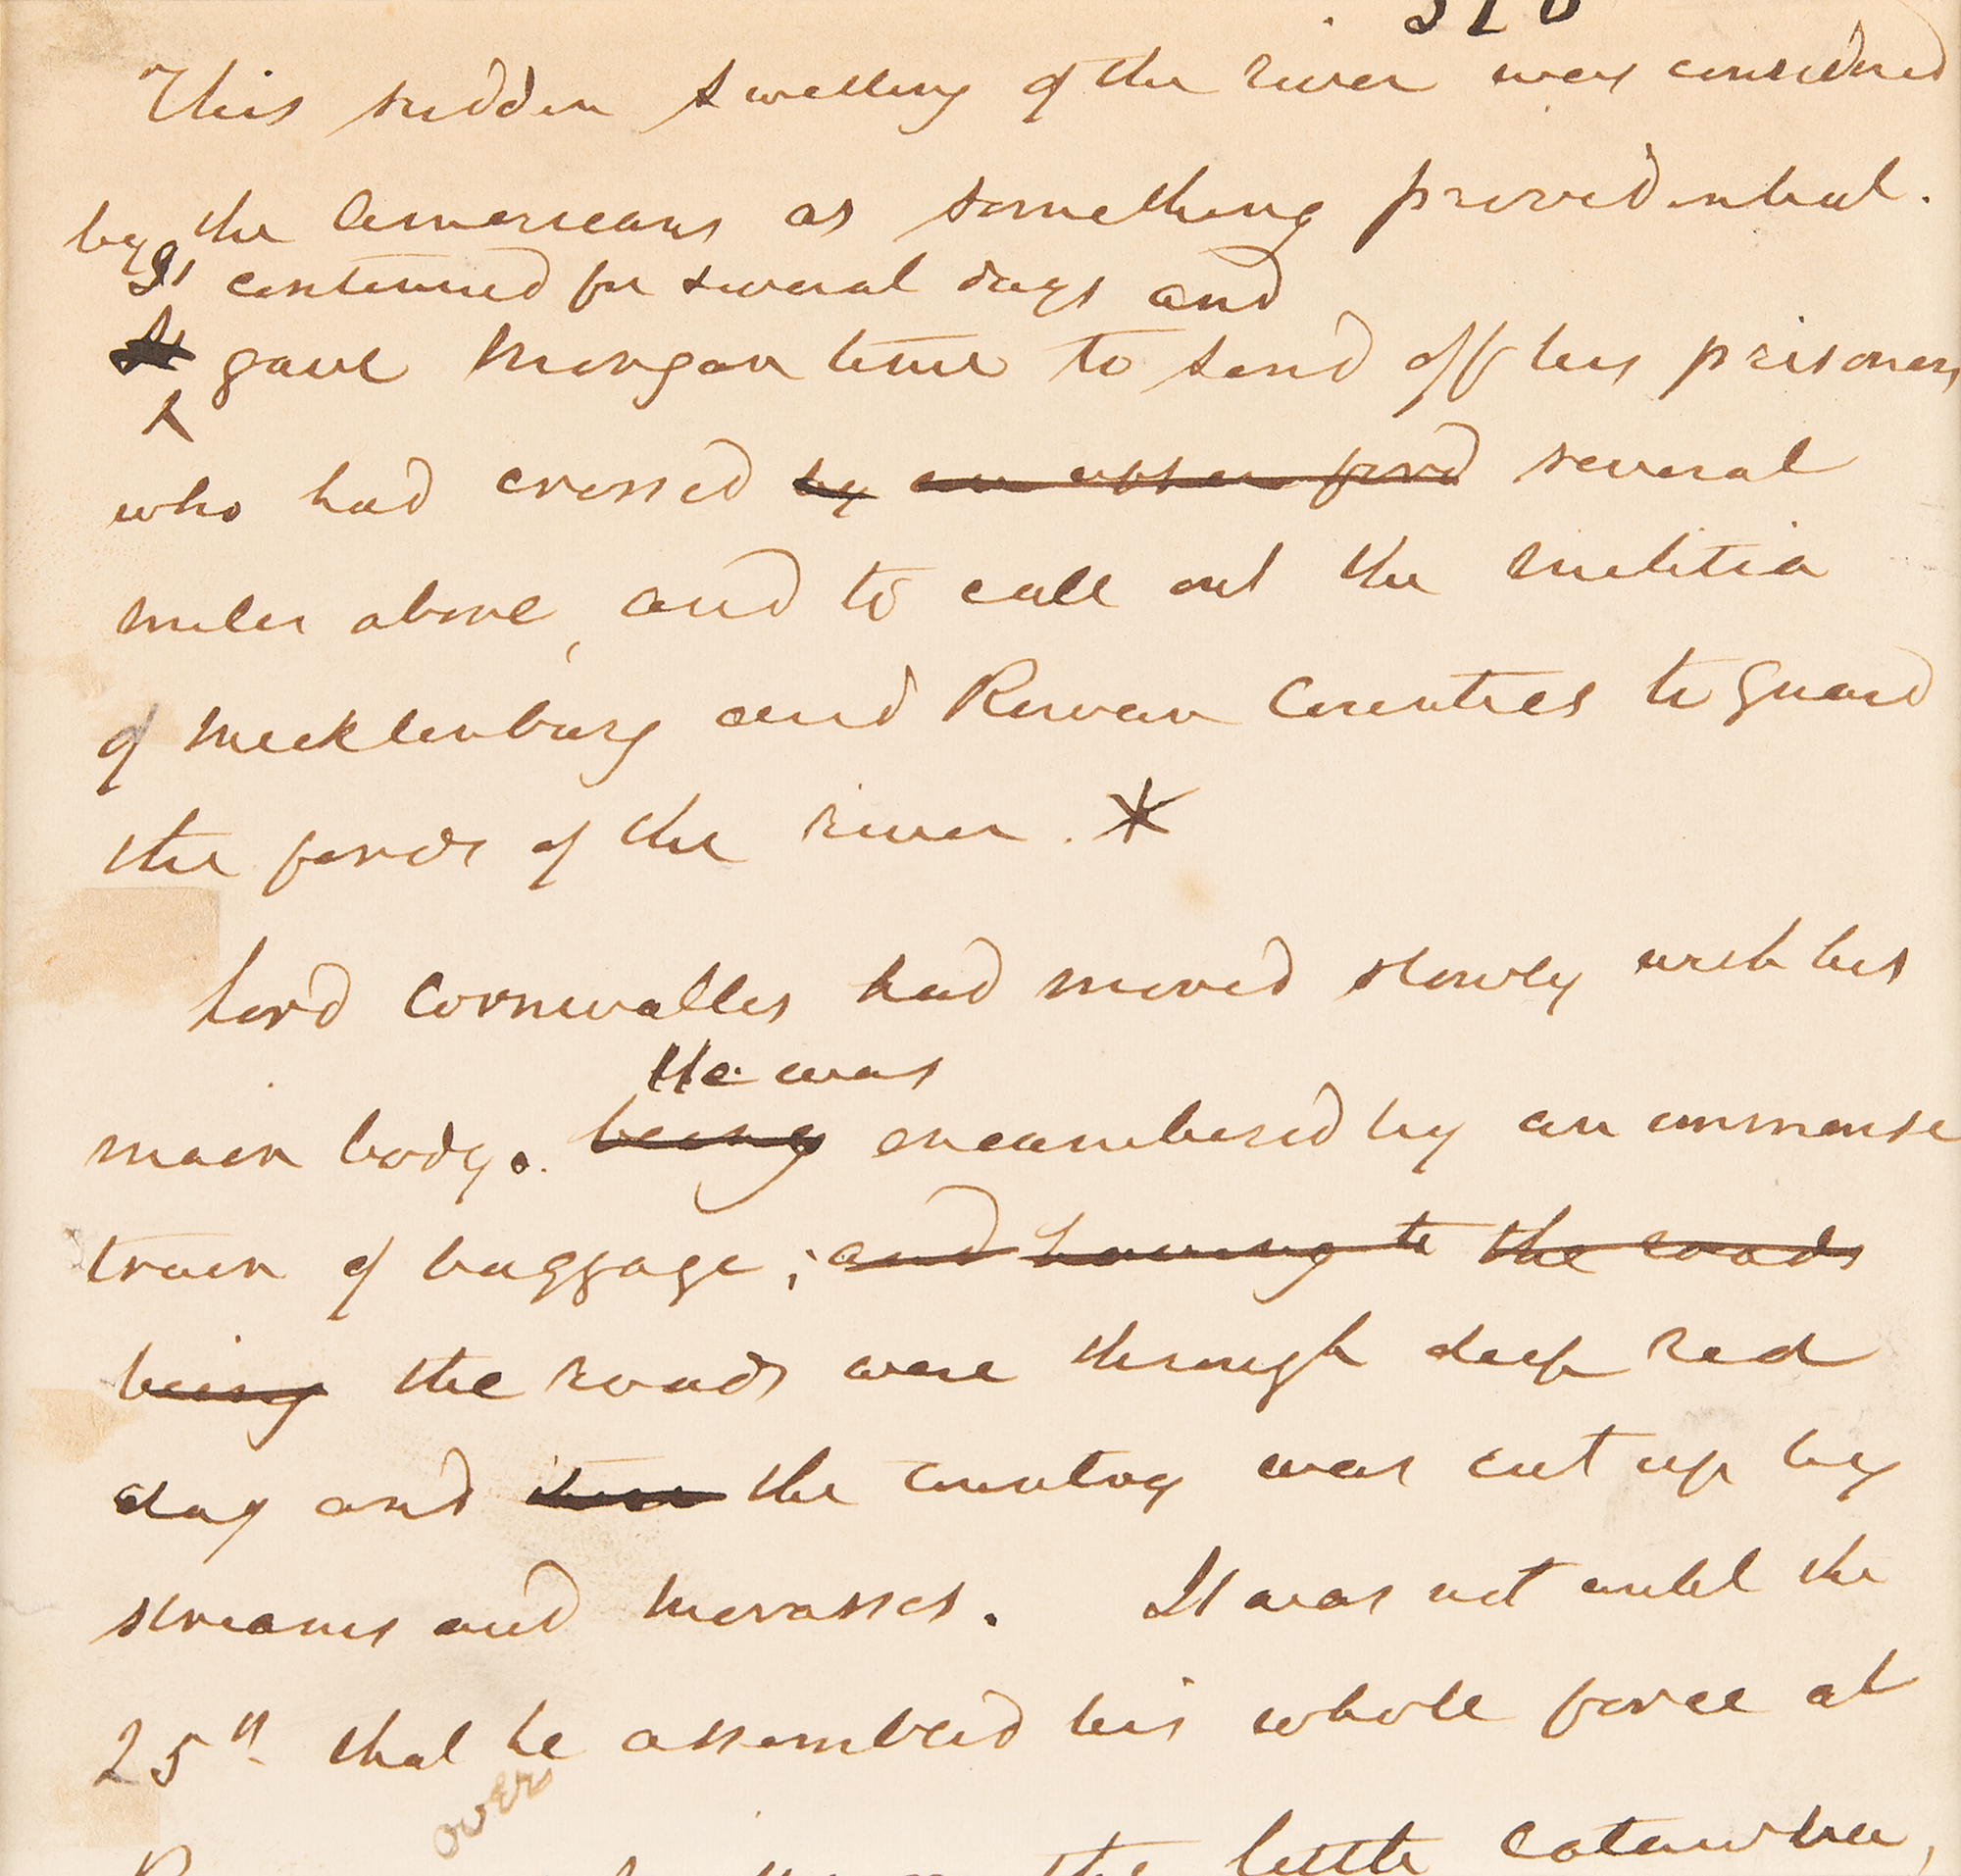 This sudden swelling of the river was considered
by the Americans as something providential.
It continued for several days and
gave Morgan time to send off his prisoners
who had crossed by an upper ford several
miles above, and to call out the militia
of Mecklenburg and Rowan Counties to guard
the fords of the river. *
Lord Cornwallis had moved slowly with his
He was
main body. being encumbered by an immense
train of baggage; and having to the roads
being the roads were through deep red
clay and the country was cut up by
streams and morasses. It was not until the
25th that he assembled his whole force at
over
the little Catawba,